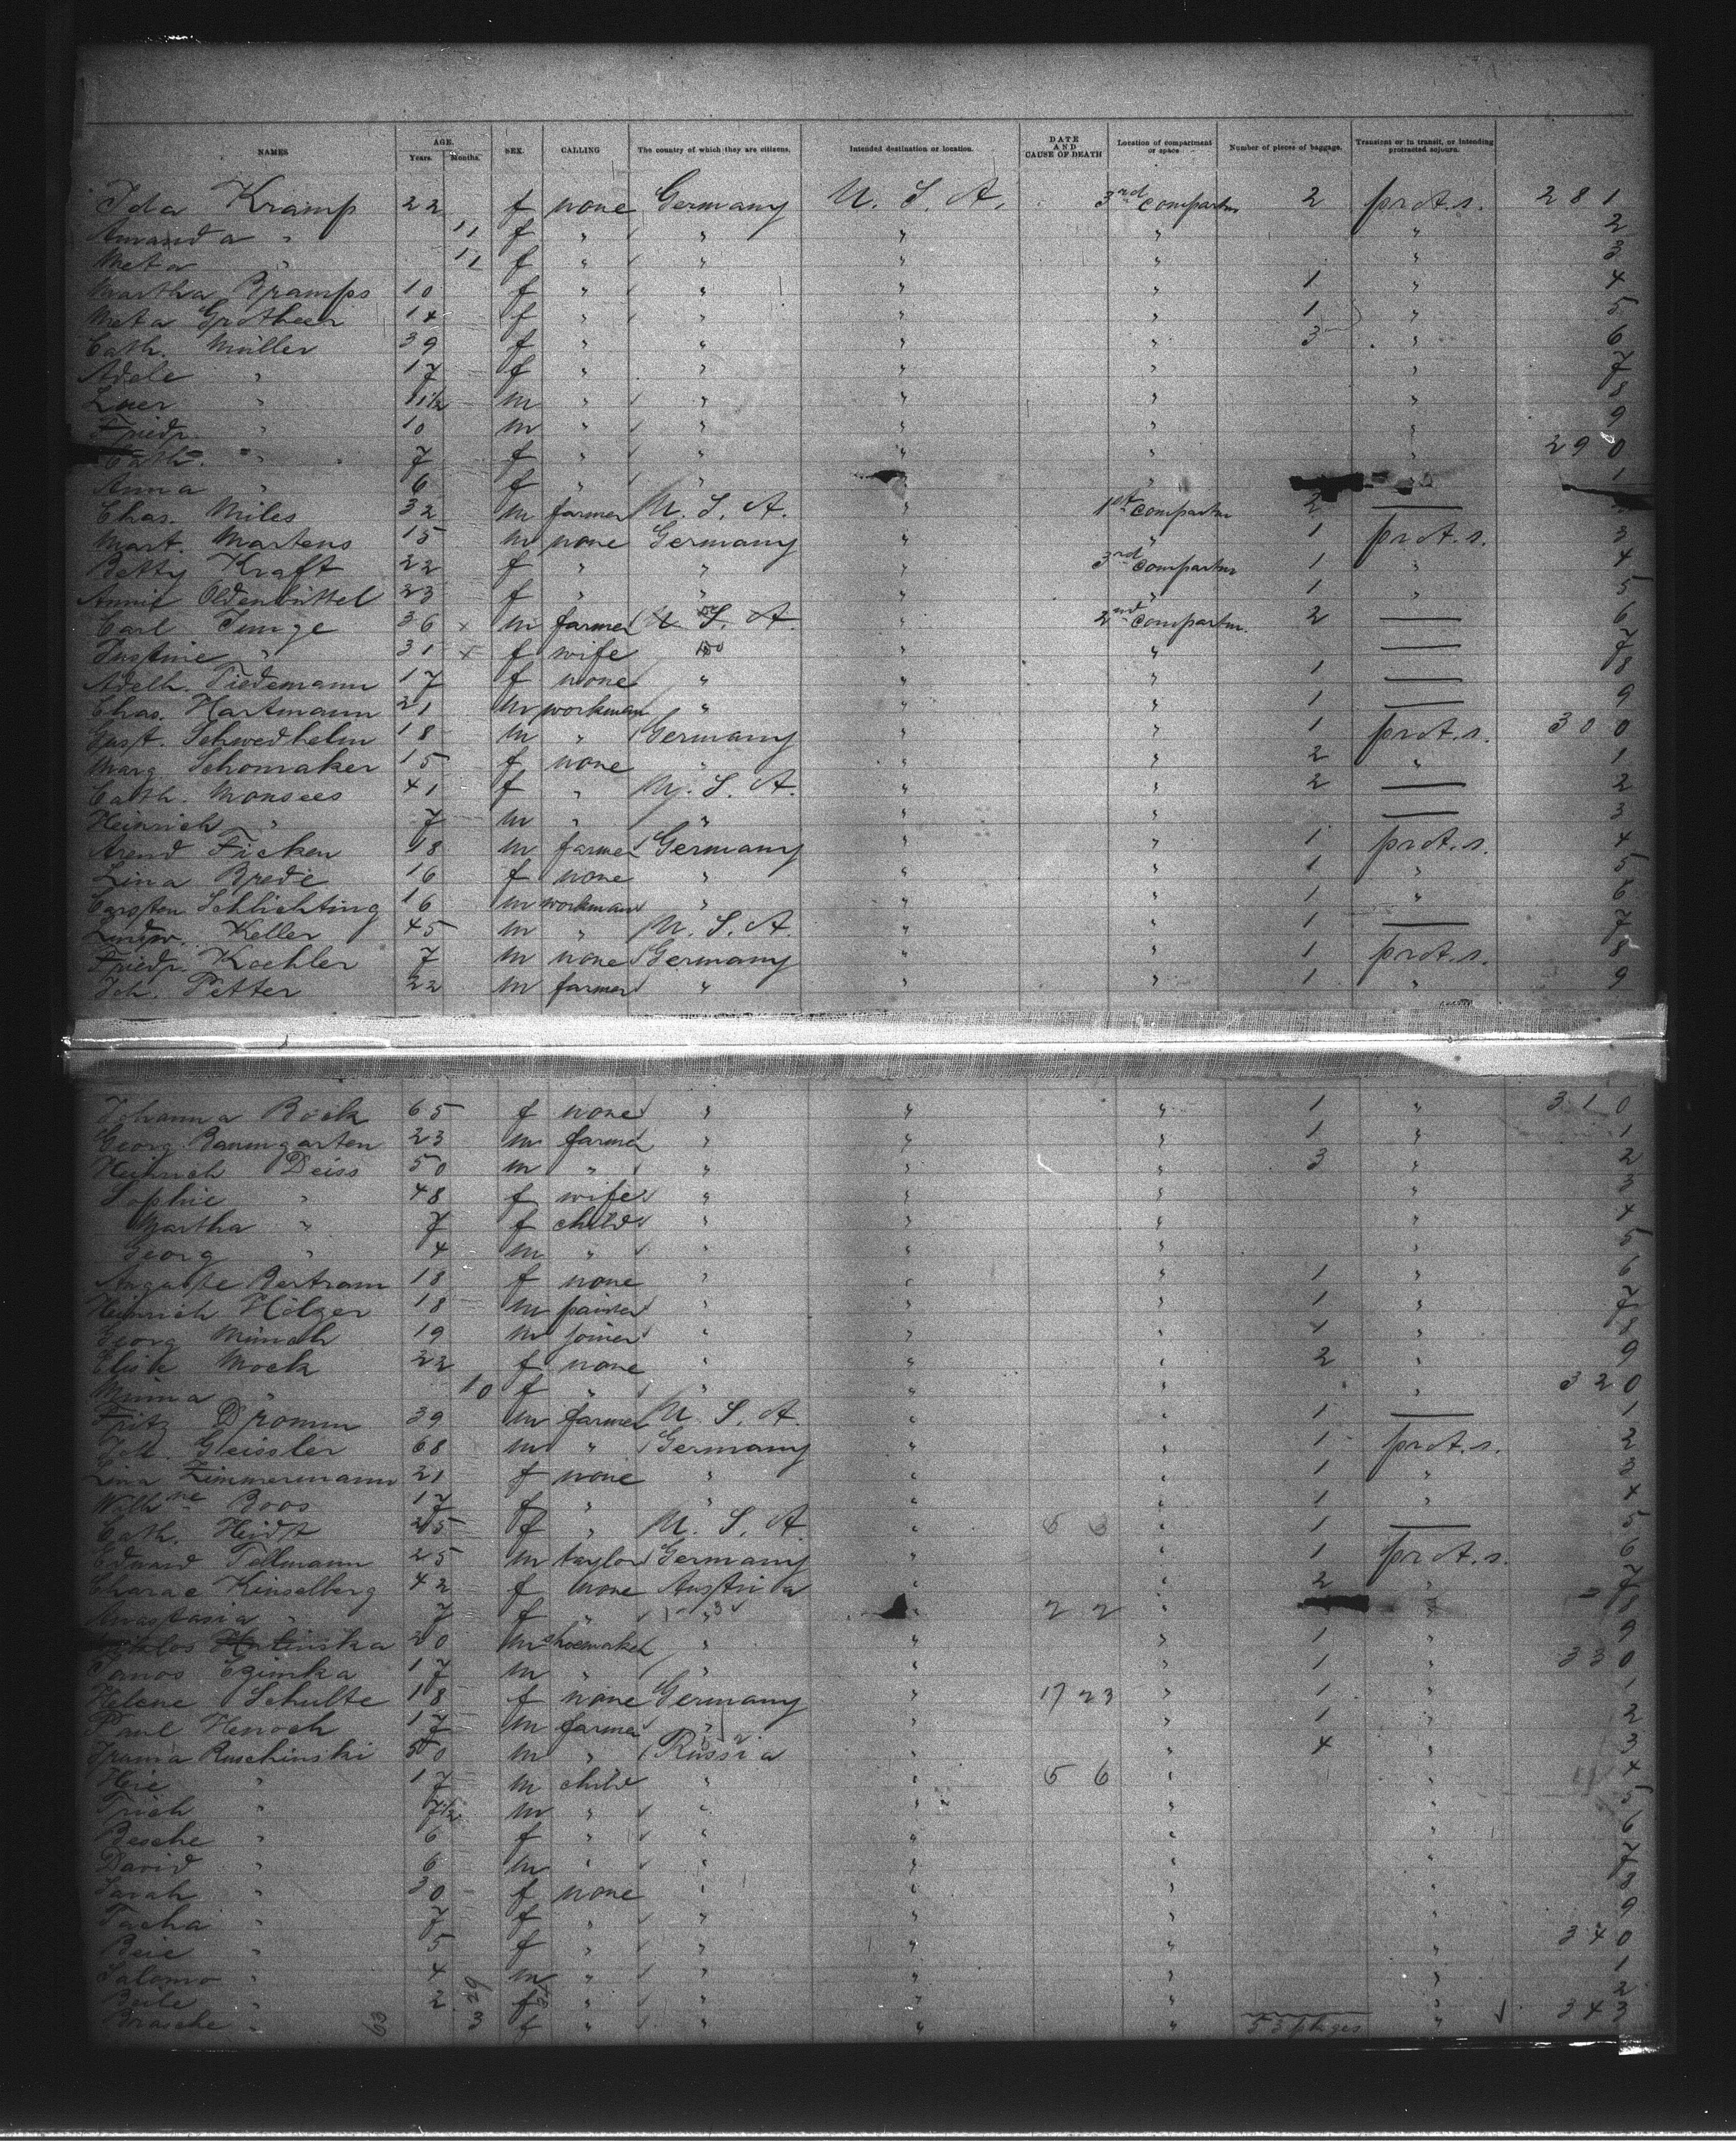 NAMES AGE. Years. Months. SEX. CALLING The country of which they are citizens. Intended destination or location. DATE AND CAUSE OF DEATH Location of compartment or space Number of pieces of baggage. Transient or in transit, or intending protracted sojourn.
Ida Kramp 22 f none Germany U. S. A. 3rd compartm 2 prot.s. 281
Amanda " 11 f " " " " " 2
Meta " 11 f " " " " " 3
Martha Bramps 10 f " " " " 1 " 4
Meta Grotheer 14 f " " " " 1 " 5
Cath. Müller 39 f " " " " 3 " 6
Adele " 17 f " " " " " 7
Luer " 11½ m " " " " " 8
Friedr. " 10 m " " " " " 9
Cath. " 7 f " " " " " 290
Anna " 6 f " " " " 1
Chas. Miles 32 m farmer U. S. A. " 1st compartm 2 —
Mart. Martens 15 m none Germany " " 1 prot.s. 3
Betty Kraft 22 f " " " 3rd compartm 1 " 4
Annie Oldenbüttel 23 f " " " " 1 " 5
Carl Junge 36 x m farmer U. S. A. " 2nd compartm. 2 — 6
Justine " 31 x f wife " " — 7
Adelh. Tiedemann 17 f none " " " 1 — 8
Chas. Hartmann 21 m workman " " " 1 — 9
Gust. Schwedhelm 18 m " Germany " " 1 prot.s. 300
Marg Schomaker 15 f none " " " 2 " 1
Cath. Monsees 41 f " U. S. A. " " 2 — 2
Heinrich " 7 m " " " " — 3
Arend Ficken 18 m farmer Germany " " 1 prot.s. 4
Lina Brede 16 f none " " " 1 " 5
Carsten Schlichting 16 m workman " " " 1 " 6
Ludw. Keller 45 m " U. S. A. " " 1 — 7
Friedr. Koehler 7 m none Germany " " 1 prot.s. 8
Joh. Petter 22 m farmer " " " 1 " 9
Johanna Bock 65 f none " " " 1 " 310
Georg Baumgarten 23 m farmer " " " 1 " 1
Heinrich Deiss 50 m " " " " 3 " 2
Sophie " 48 f wife " " " " 3
Martha " 7 f child " " " " 4
Georg " 4 m " " " " " 5
Auguste Bertram 18 f none " " " 1 " 6
Heinrich Hölzer 18 m painter " " " 1 " 7
Georg Münch 19 m joiner " " " 1 " 8
Elise Mock 22 f none " " " 2 " 9
Minna " 10 f " " " " " 320
Fritz Dromm 39 m farmer U. S. A. " " 1 — 1
Joh. Geissler 68 m " Germany " " 1 prot.s. 2
Lina Zimmermann 21 f none " " " 1 " 3
Wilhne Boos 17 f " " " " 1 " 4
Cath. Heidt 25 f " U. S. A. " 6 3 " 1 — 5
Eduard Tellmann 25 m taylor Germany " " 1 prot.s. 6
Kinselberg 42 f none Austria " " 2 " 7
Anastasia " 7 f " " " 2 2 " " 8
20 m shoemaker " " " 1 " 9
Janos 17 m " " " " 1 " 330
Helene Schulte 18 f none Germany " 17 23 " 1 " 1
Paul Henoch 17 m farmer " " " 1 " 2
Ruschinski 50 m " Russia " " 4 " 3
17 m child " " 5 6 " " 4
7½ m " " " " " 5
Besche " 6 f " " " " " 6
David " 6 m " " " " " 7
Sarah " 30 f none " " " " 8
Tacha " 7 f " " " " " 9
Beie " 5 f " " " " " 340
Salomo " 4 m " " " " " 1
Beile " 2 f " " " " " 2
Brasche " 3 f " " " " " 343
63